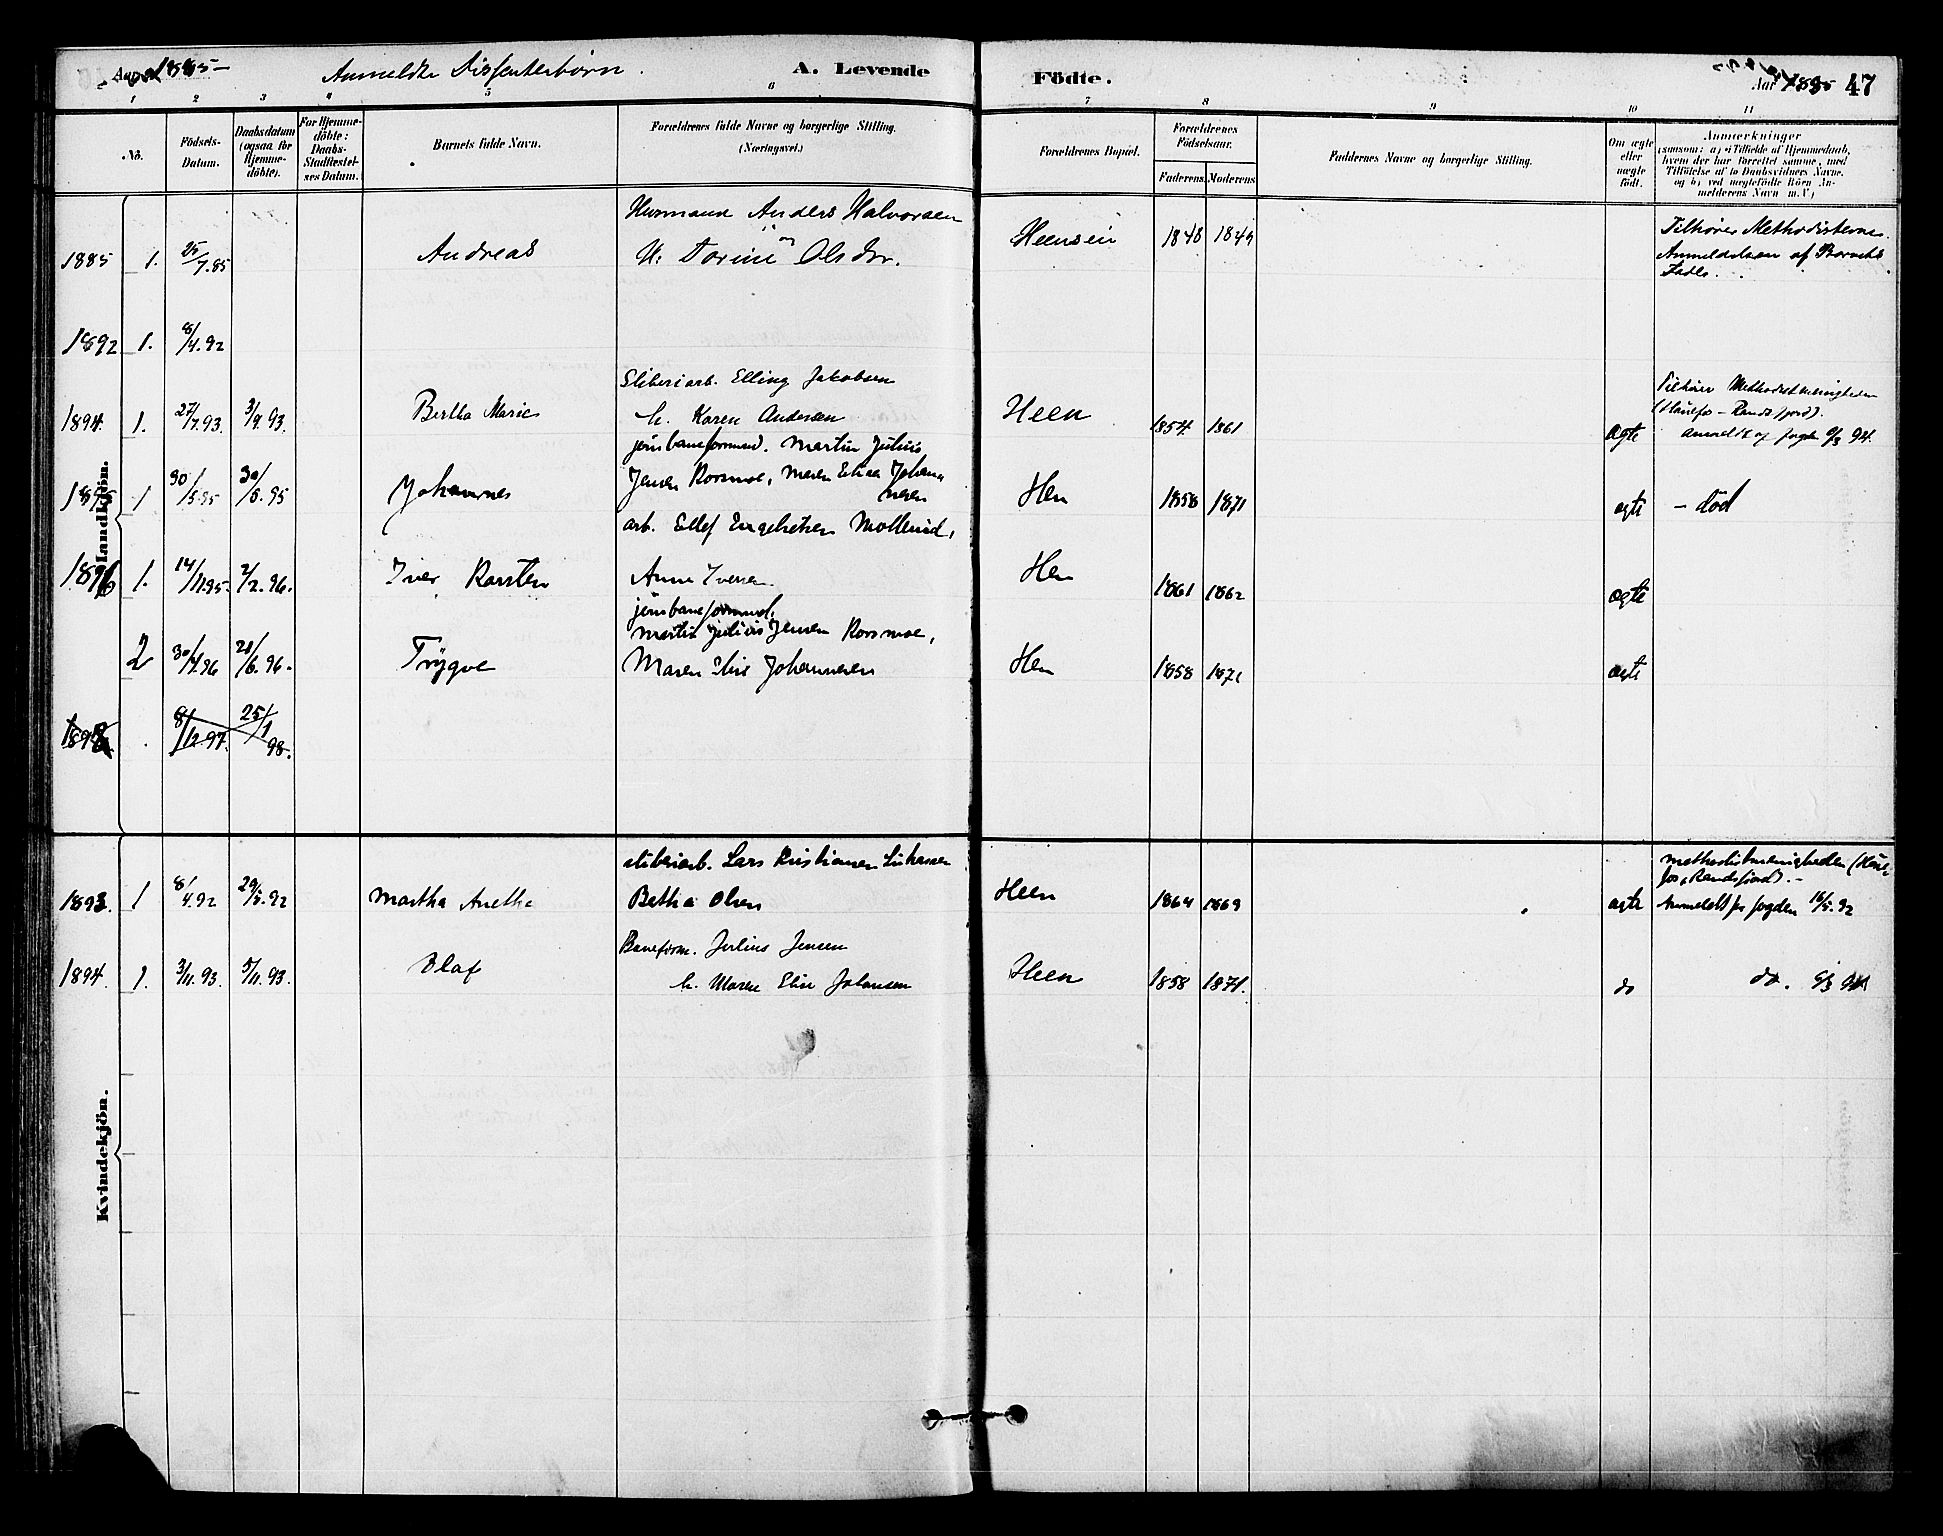 Aar 1885 –
Anmeldte Dissenterbörn.
A. Levende
Födte.
Aar 1885
47
1 2 3 4 5 6 7 8 9 10 11
No.
Födsels-
Datum.
Daabsdatum
(ogsaa for
Hjemme-
döbte).
For Hjemme-
döbte:
Daabs-
Stadfæstel-
ses Datum.
Barnets fulde Navn.
Forældrenes fulde Navne og borgerlige Stilling.
(Næringsvei.)
Forældrenes Bopæl.
Forældrenes
Födselsaar.
Faderens. Moderens.
Faddernes Navne og borgerlige Stilling.
Om ægte
eller
uægte
födt.
Anmærkninger
(saasom: a) i Tilfælde af Hjemmedaab,
hvem der har forrettet samme, med
Tilföielse af to Daabsvidners Navne,
og b) ved uægtefödte Börn An-
melderens Navn m. V.)
Mandkjön.
Husmand Anders Halvorsen
1885 1. 25/7.85 Andreas H. Torine Olsdtr. Heensei 1848 1849
Tilhører Methodisterne.
Anmeldelsen af Barnets
Fader.
1892 1. 8/4.92
Sliberiarb. Elling Jakobsen
1894. 1. 27/7.93. 3/9.93. Bertha Marie h. Karen Andersen Heen 1854. 1861 ægte
Tilhører Methodistmenigheden
(Hønefos – Randsfjord).
Anmeldt af fogden 6/3 94.
jernbaneformand. Martin Julius
1895 1 30/5.95 30/6.95 Johannes Jensen Korsmoe, Maren Elise Johan
nesen Hen 1858 1871 ægte – död
arb. Ellef Engebretsen Mollerud,
1896 1. 14/11.95. 2/2.96. Iver Karsten Anne Iversen Hen 1861 1862 ægte
jernbaneformand,
Martin Julius Jensen Korsmoe,
2 30/4.96 28/6.96. Trygve Maren Elise Johannesen Hen 1858 1871 ægte
1898 8/12.97. 25/1 98.
Kvindekjön.
sliberiarb. Lars Kristiansen
1893. 1 8/4.92 29/5.92 Martha Anetha Betha Olsen Heen 1864 1869 ægte
methodistmenigheden (Høne-
fos, Randsfjord). –
Anmeldt fr fogden 16/5.92
Baneform. Julius Jensen
1894. 1. 3/11.93. 5/11.93. Olaf h. Maren Elise Johansen Heen 1858 1871. do do. 6/3 94